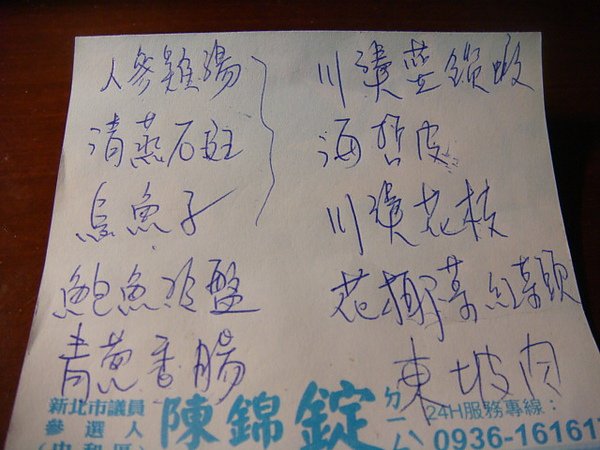 人參雞湯
清蒸石斑
烏魚子
鮑魚冷盤
青蔥香腸
川燙藍鑽蝦
海哲皮
川燙花枝
花椰菜紅菜頭
東坡肉
新北市議員
參選人
(中和區)
陳錦錠
24H服務專線：
0936-16161